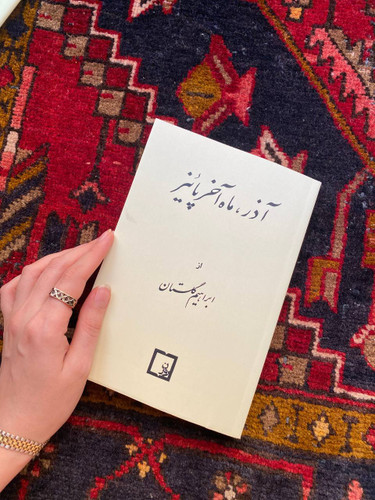 آذر، ماه آخر پائیز
از
ابراهیم گلستان